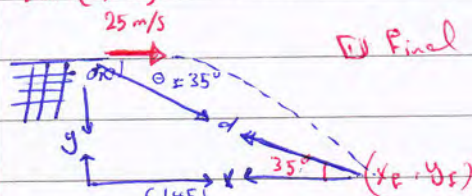 25 m/s
Final
θ = 35°
d
y
35°
(xf, yf)
x